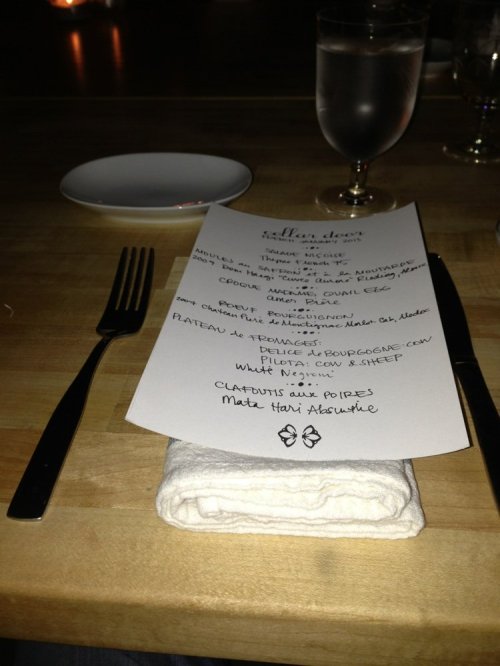 cellar door
FRENCH JANUARY 2013
SALADE NIÇOISE
Thyme French 75
MOULES au SAFRON et à la MOUTARDE
2009 Dom Haegi "Cuvee Aurore" Riesling, Alsace
CROQUE MADAME, QUAIL EGG
Amer Bière
BOEUF BOURGUIGNON
2009 Chateau Pure de Montignac Merlot Cab, Medoc
PLATEAU de FROMAGES:
DELICE de BOURGOGNE: COW
PILOTA: COW & SHEEP
White Negroni
CLAFOUTIS aux POIRES
Mata Hari Absinthe